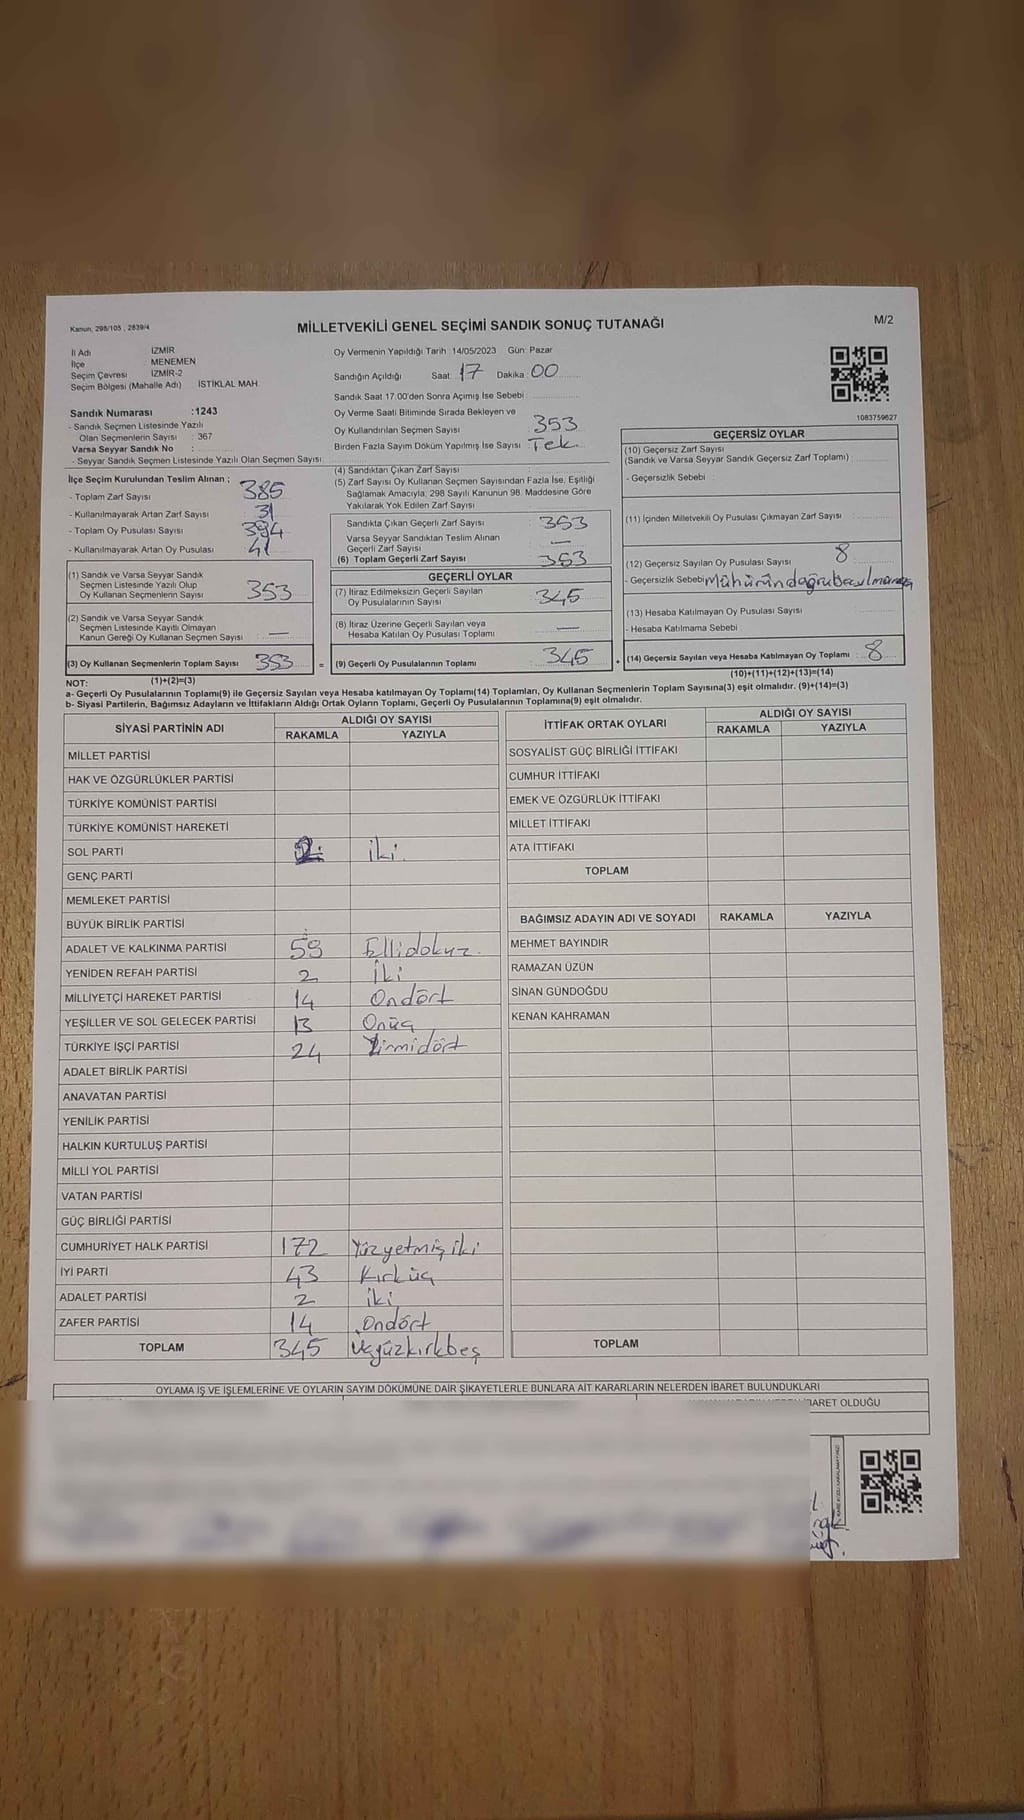 Kanun, 298/105 , 2839/4
MİLLETVEKİLİ GENEL SEÇİMİ SANDIK SONUÇ TUTANAĞI
M/2
İl Adı İZMİR
İlçe MENEMEN
Seçim Çevresi İZMİR-2
Seçim Bölgesi (Mahalle Adı) : İSTİKLAL MAH.
Sandık Numarası :1243
- Sandık Seçmen Listesinde Yazılı
Olan Seçmenlerin Sayısı : 367
Varsa Seyyar Sandık No :
- Seyyar Sandık Seçmen Listesinde Yazılı Olan Seçmen Sayısı :
Oy Vermenin Yapıldığı Tarih :14/05/2023 Gün: Pazar
Sandığın Açıldığı Saat: 17 Dakika : 00
Sandık Saat 17.00'den Sonra Açımış İse Sebebi :
Oy Verme Saati Bitiminde Sırada Bekleyen ve
Oy Kullandırılan Seçmen Sayısı : 353
Birden Fazla Sayım Döküm Yapılmış İse Sayısı : Tek
1083759627
İlçe Seçim Kurulundan Teslim Alınan ;
- Toplam Zarf Sayısı : 385
- Kullanılmayarak Artan Zarf Sayısı : 31
- Toplam Oy Pusulası Sayısı : 394
- Kullanılmayarak Artan Oy Pusulası : 41
(1) Sandık ve Varsa Seyyar Sandık
Seçmen Listesinde Yazılı Olup
Oy Kullanan Seçmenlerin Sayısı : 353
(2) Sandık ve Varsa Seyyar Sandık
Seçmen Listesinde Kayıtlı Olmayan
Kanun Gereği Oy Kullanan Seçmen Sayısı : —
(3) Oy Kullanan Seçmenlerin Toplam Sayısı : 353 =
(4) Sandıktan Çıkan Zarf Sayısı :
(5) Zarf Sayısı Oy Kullanan Seçmen Sayısından Fazla İse, Eşitliği
Sağlamak Amacıyla, 298 Sayılı Kanunun 98. Maddesine Göre
Yakılarak Yok Edilen Zarf Sayısı :
Sandıkta Çıkan Geçerli Zarf Sayısı : 353
Varsa Seyyar Sandıktan Teslim Alınan
Geçerli Zarf Sayısı : —
(6) Toplam Geçerli Zarf Sayısı : 353
GEÇERLİ OYLAR
(7) İtiraz Edilmeksizin Geçerli Sayılan
Oy Pusulalarının Sayısı : 345
(8) İtiraz Üzerine Geçerli Sayılan veya
Hesaba Katılan Oy Pusulası Toplamı : —
(9) Geçerli Oy Pusulalarının Toplamı : 345 +
GEÇERSİZ OYLAR
(10) Geçersiz Zarf Sayısı
(Sandık ve Varsa Seyyar Sandık Geçersiz Zarf Toplamı) :
- Geçersizlik Sebebi :
(11) İçinden Milletvekili Oy Pusulası Çıkmayan Zarf Sayısı :
(12) Geçersiz Sayılan Oy Pusulası Sayısı : 8
- Geçersizlik Sebebi :
(13) Hesaba Katılmayan Oy Pusulası Sayısı :
- Hesaba Katılmama Sebebi :
(14) Geçersiz Sayılan veya Hesaba Katılmayan Oy Toplamı : 8
NOT: (1)+(2)=(3) (10)+(11)+(12)+(13)=(14)
a- Geçerli Oy Pusulalarının Toplamı(9) ile Geçersiz Sayılan veya Hesaba katılmayan Oy Toplamı(14) Toplamları, Oy Kullanan Seçmenlerin Toplam Sayısına(3) eşit olmalıdır. (9)+(14)=(3)
b- Siyasi Partilerin, Bağımsız Adayların ve İttifakların Aldığı Ortak Oyların Toplamı, Geçerli Oy Pusulalarının Toplamına(9) eşit olmalıdır.
SİYASİ PARTİNİN ADI ALDIĞI OY SAYISI
RAKAMLA YAZIYLA
MİLLET PARTİSİ
HAK VE ÖZGÜRLÜKLER PARTİSİ
TÜRKİYE KOMÜNİST PARTİSİ
TÜRKİYE KOMÜNİST HAREKETİ
SOL PARTİ 2 iki
GENÇ PARTİ
MEMLEKET PARTİSİ
BÜYÜK BİRLİK PARTİSİ
ADALET VE KALKINMA PARTİSİ 59 Ellidokuz
YENİDEN REFAH PARTİSİ 2 İki
MİLLİYETÇİ HAREKET PARTİSİ 14 Ondört
YEŞİLLER VE SOL GELECEK PARTİSİ 13 Onüç
TÜRKİYE İŞÇİ PARTİSİ 24 Yirmidört
ADALET BİRLİK PARTİSİ
ANAVATAN PARTİSİ
YENİLİK PARTİSİ
HALKIN KURTULUŞ PARTİSİ
MİLLİ YOL PARTİSİ
VATAN PARTİSİ
GÜÇ BİRLİĞİ PARTİSİ
CUMHURİYET HALK PARTİSİ 172 Yüzyetmiş iki
İYİ PARTİ 43 Kırküç
ADALET PARTİSİ 2 iki
ZAFER PARTİSİ 14 Ondört
TOPLAM 345 üçyüzkırkbeş
İTTİFAK ORTAK OYLARI ALDIĞI OY SAYISI
RAKAMLA YAZIYLA
SOSYALİST GÜÇ BİRLİĞİ İTTİFAKI
CUMHUR İTTİFAKI
EMEK VE ÖZGÜRLÜK İTTİFAKI
MİLLET İTTİFAKI
ATA İTTİFAKI
TOPLAM
BAĞIMSIZ ADAYIN ADI VE SOYADI RAKAMLA YAZIYLA
MEHMET BAYINDIR
RAMAZAN ÜZÜN
SİNAN GÜNDOĞDU
KENAN KAHRAMAN
TOPLAM
OYLAMA İŞ VE İŞLEMLERİNE VE OYLARIN SAYIM DÖKÜMÜNE DAİR ŞİKAYETLERLE BUNLARA AİT KARARLARIN NELERDEN İBARET BULUNDUKLARI
OLDUĞU